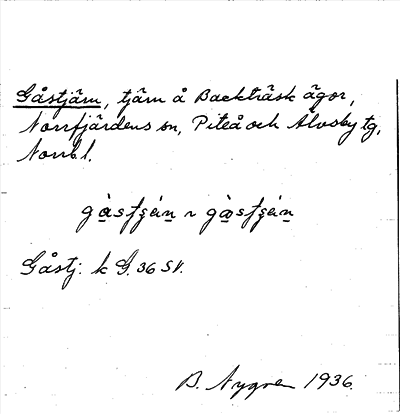 Gåstjärn, tjärn å Backträsk ägor,
Norrfjärdens sn, Piteå och Älvsby tg,
Norrb l.
Gåstj: k G. 36 SV.
B. Nygren 1936